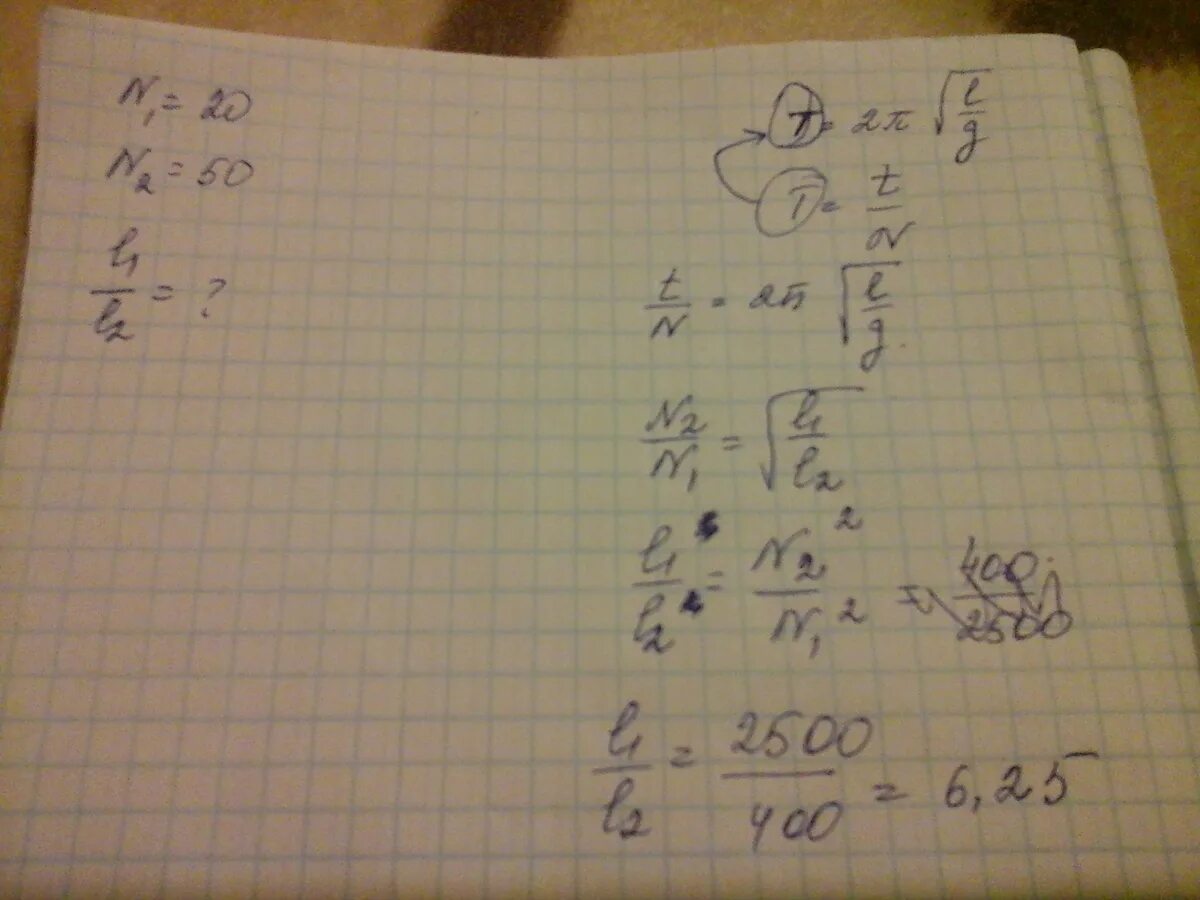 N₁ = 20
N₂ = 50
l₁/l₂ = ?
T = 2π √(l/g)
T = t/N
t/N = 2π √(l/g)
N₂/N₁ = √(l₁/l₂)
l₁/l₂ = N₂²/N₁² = 400/2500
l₁/l₂ = 2500/400 = 6,25